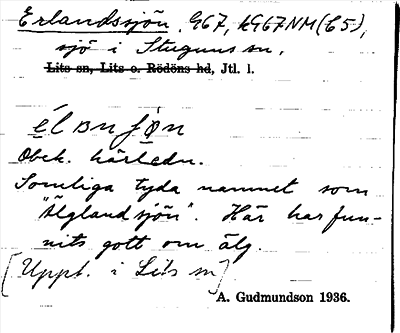 Erlandssjön, 967, k967NM(C5),
sjö i Stuguns sn,
Lits sn, Lits o. Rödöns hd, Jtl. l.
Obek. härledn.
Somliga tyda namnet som
"Älglandsjön". Här har fun-
nits gott om älg.
[Uppt. i Lits sn]
A. Gudmundson 1936.